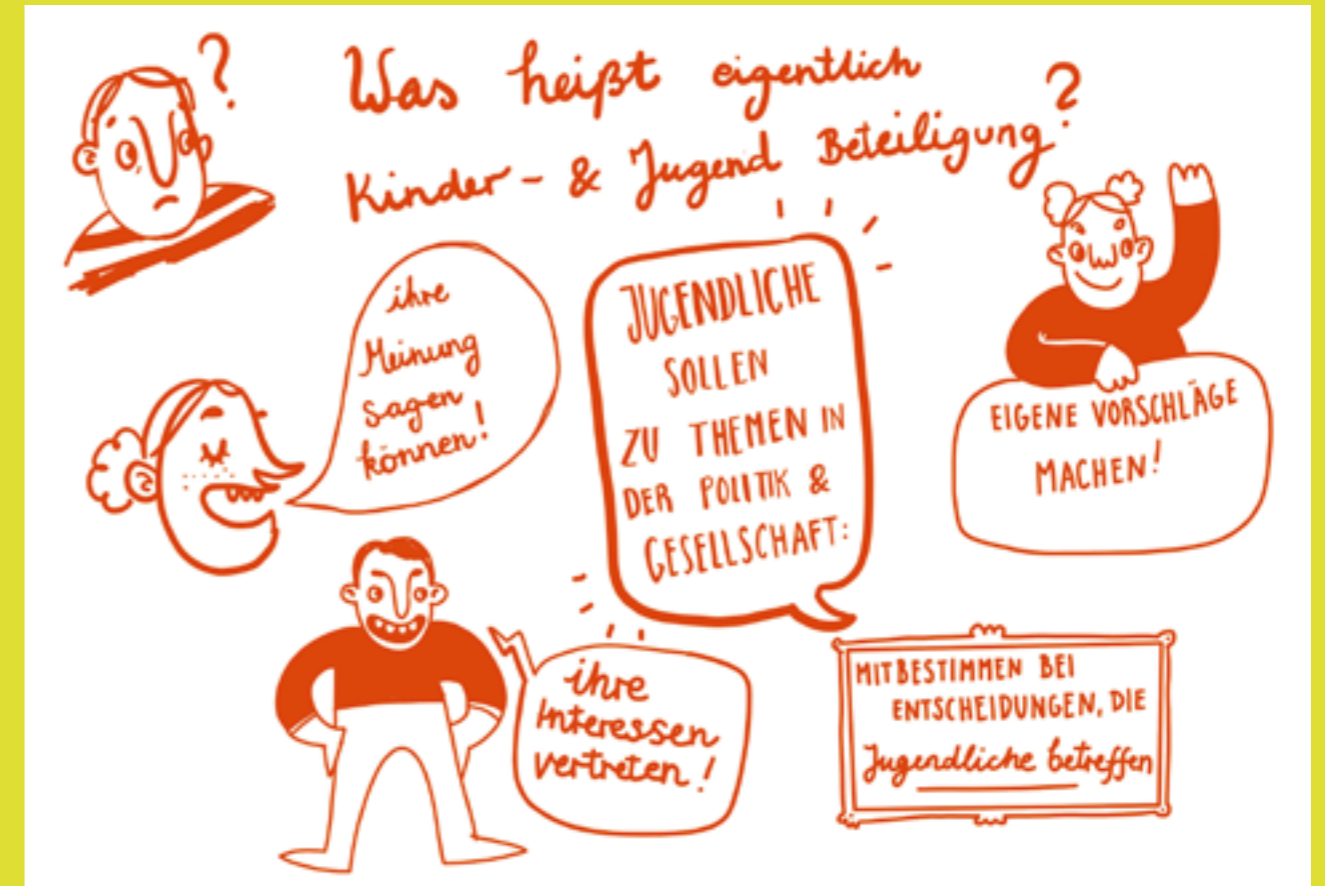 ?
Was heißt eigentlich
Kinder- & Jugend Beteiligung?
ihre
Meinung
sagen
können!
JUGENDLICHE
SOLLEN
ZU THEMEN IN
DER POLITIK &
GESELLSCHAFT:
EIGENE VORSCHLÄGE
MACHEN!
ihre
Interessen
vertreten!
MITBESTIMMEN BEI
ENTSCHEIDUNGEN, DIE
Jugendliche betreffen